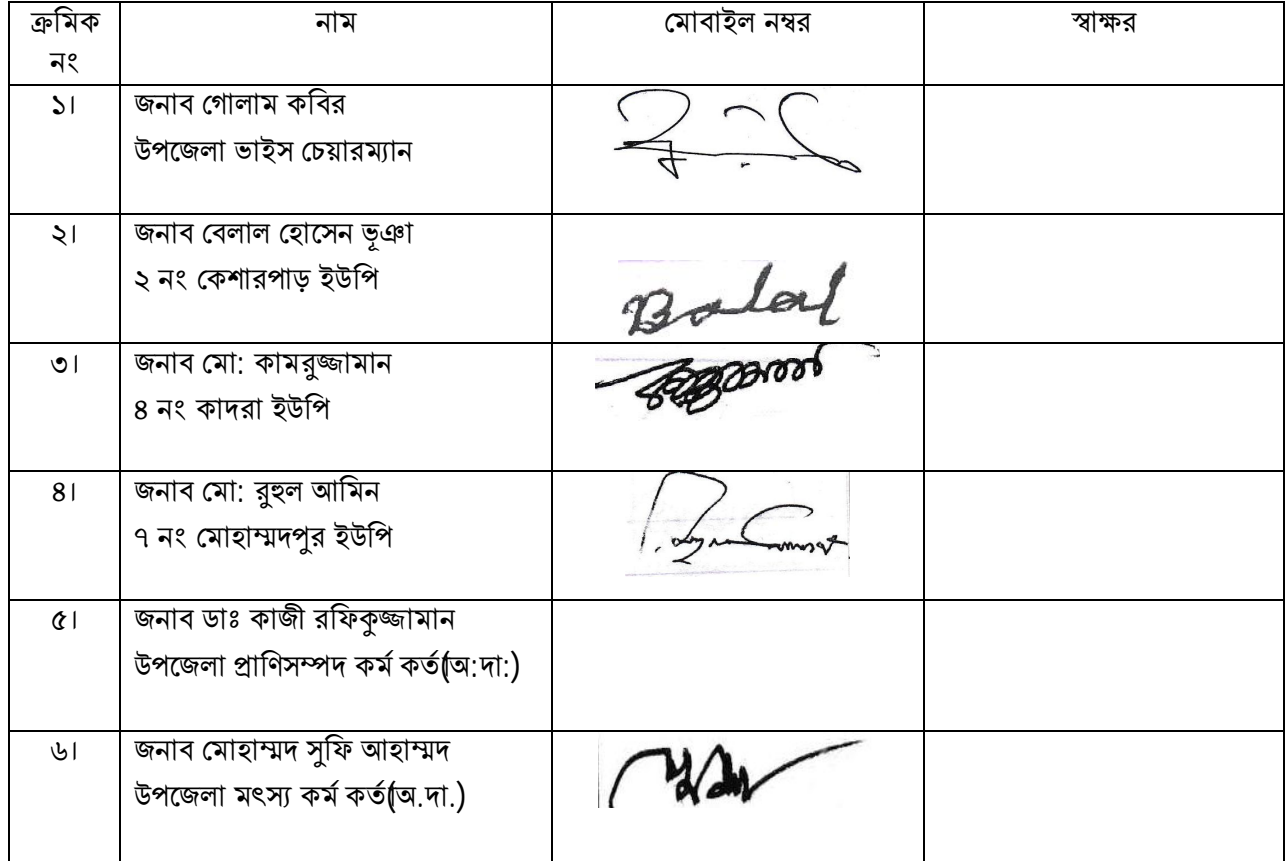 ক্রমিক নং
নাম
মোবাইল নম্বর
স্বাক্ষর
১।
জনাব গোলাম কবির
উপজেলা ভাইস চেয়ারম্যান
২।
জনাব বেলাল হোসেন ভূঞা
২ নং কেশারপাড় ইউপি
Balal
৩।
জনাব মো: কামরুজ্জামান
৪ নং কাদরা ইউপি
৪।
জনাব মো: রুহুল আমিন
৭ নং মোহাম্মদপুর ইউপি
৫।
জনাব ডাঃ কাজী রফিকুজ্জামান
উপজেলা প্রাণিসম্পদ কর্ম কর্তা(অ:দা:)
৬।
জনাব মোহাম্মদ সুফি আহাম্মদ
উপজেলা মৎস্য কর্ম কর্তা(অ.দা.)